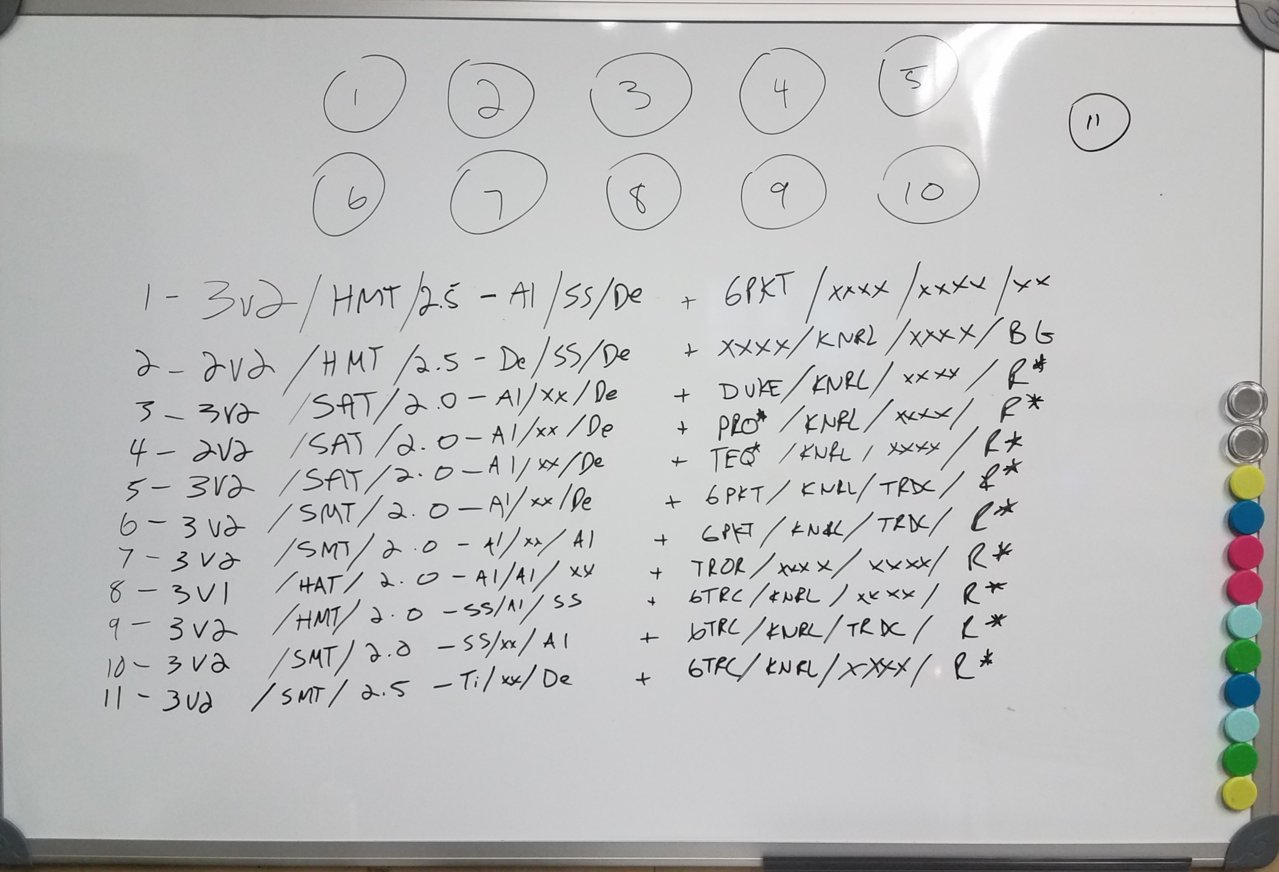 1 2 3 4 5
11
6 7 8 9 10
1 - 3v2 / HMT / 2.5 - Al / SS / De + 6PKT / xxxx / xxxx / xx
2 - 2v2 / HMT / 2.5 - De / SS / De + XXXX / KNRL / XXXX / BG
3 - 3v2 / SAT / 2.0 - Al / xx / De + DUKE / KNRL / XXXX / R*
4 - 2v2 / SAT / 2.0 - Al / xx / De + PRO* / KNRL / XXXX / R*
5 - 3v2 / SAT / 2.0 - Al / xx / De + TEQ* / KNRL / XXXX / R*
6 - 3v2 / SMT / 2.0 - Al / xx / De + 6PKT / KNRL / TRDC / R*
7 - 3v2 / SMT / 2.0 - Al / xx / Al + 6PKT / KNRL / TRDC / R*
8 - 3v1 / HAT / 2.0 - Al / Al / xx + TROR / xxxx / xxxx / R*
9 - 3v2 / HMT / 2.0 - SS / Al / SS + 6TRC / KNRL / xxxx / R*
10 - 3v2 / SMT / 2.0 - SS / xx / Al + 6TRC / KNRL / TRDC / R*
11 - 3v2 / SMT / 2.5 - Ti / xx / De + 6TRC / KNRL / XXXX / R*